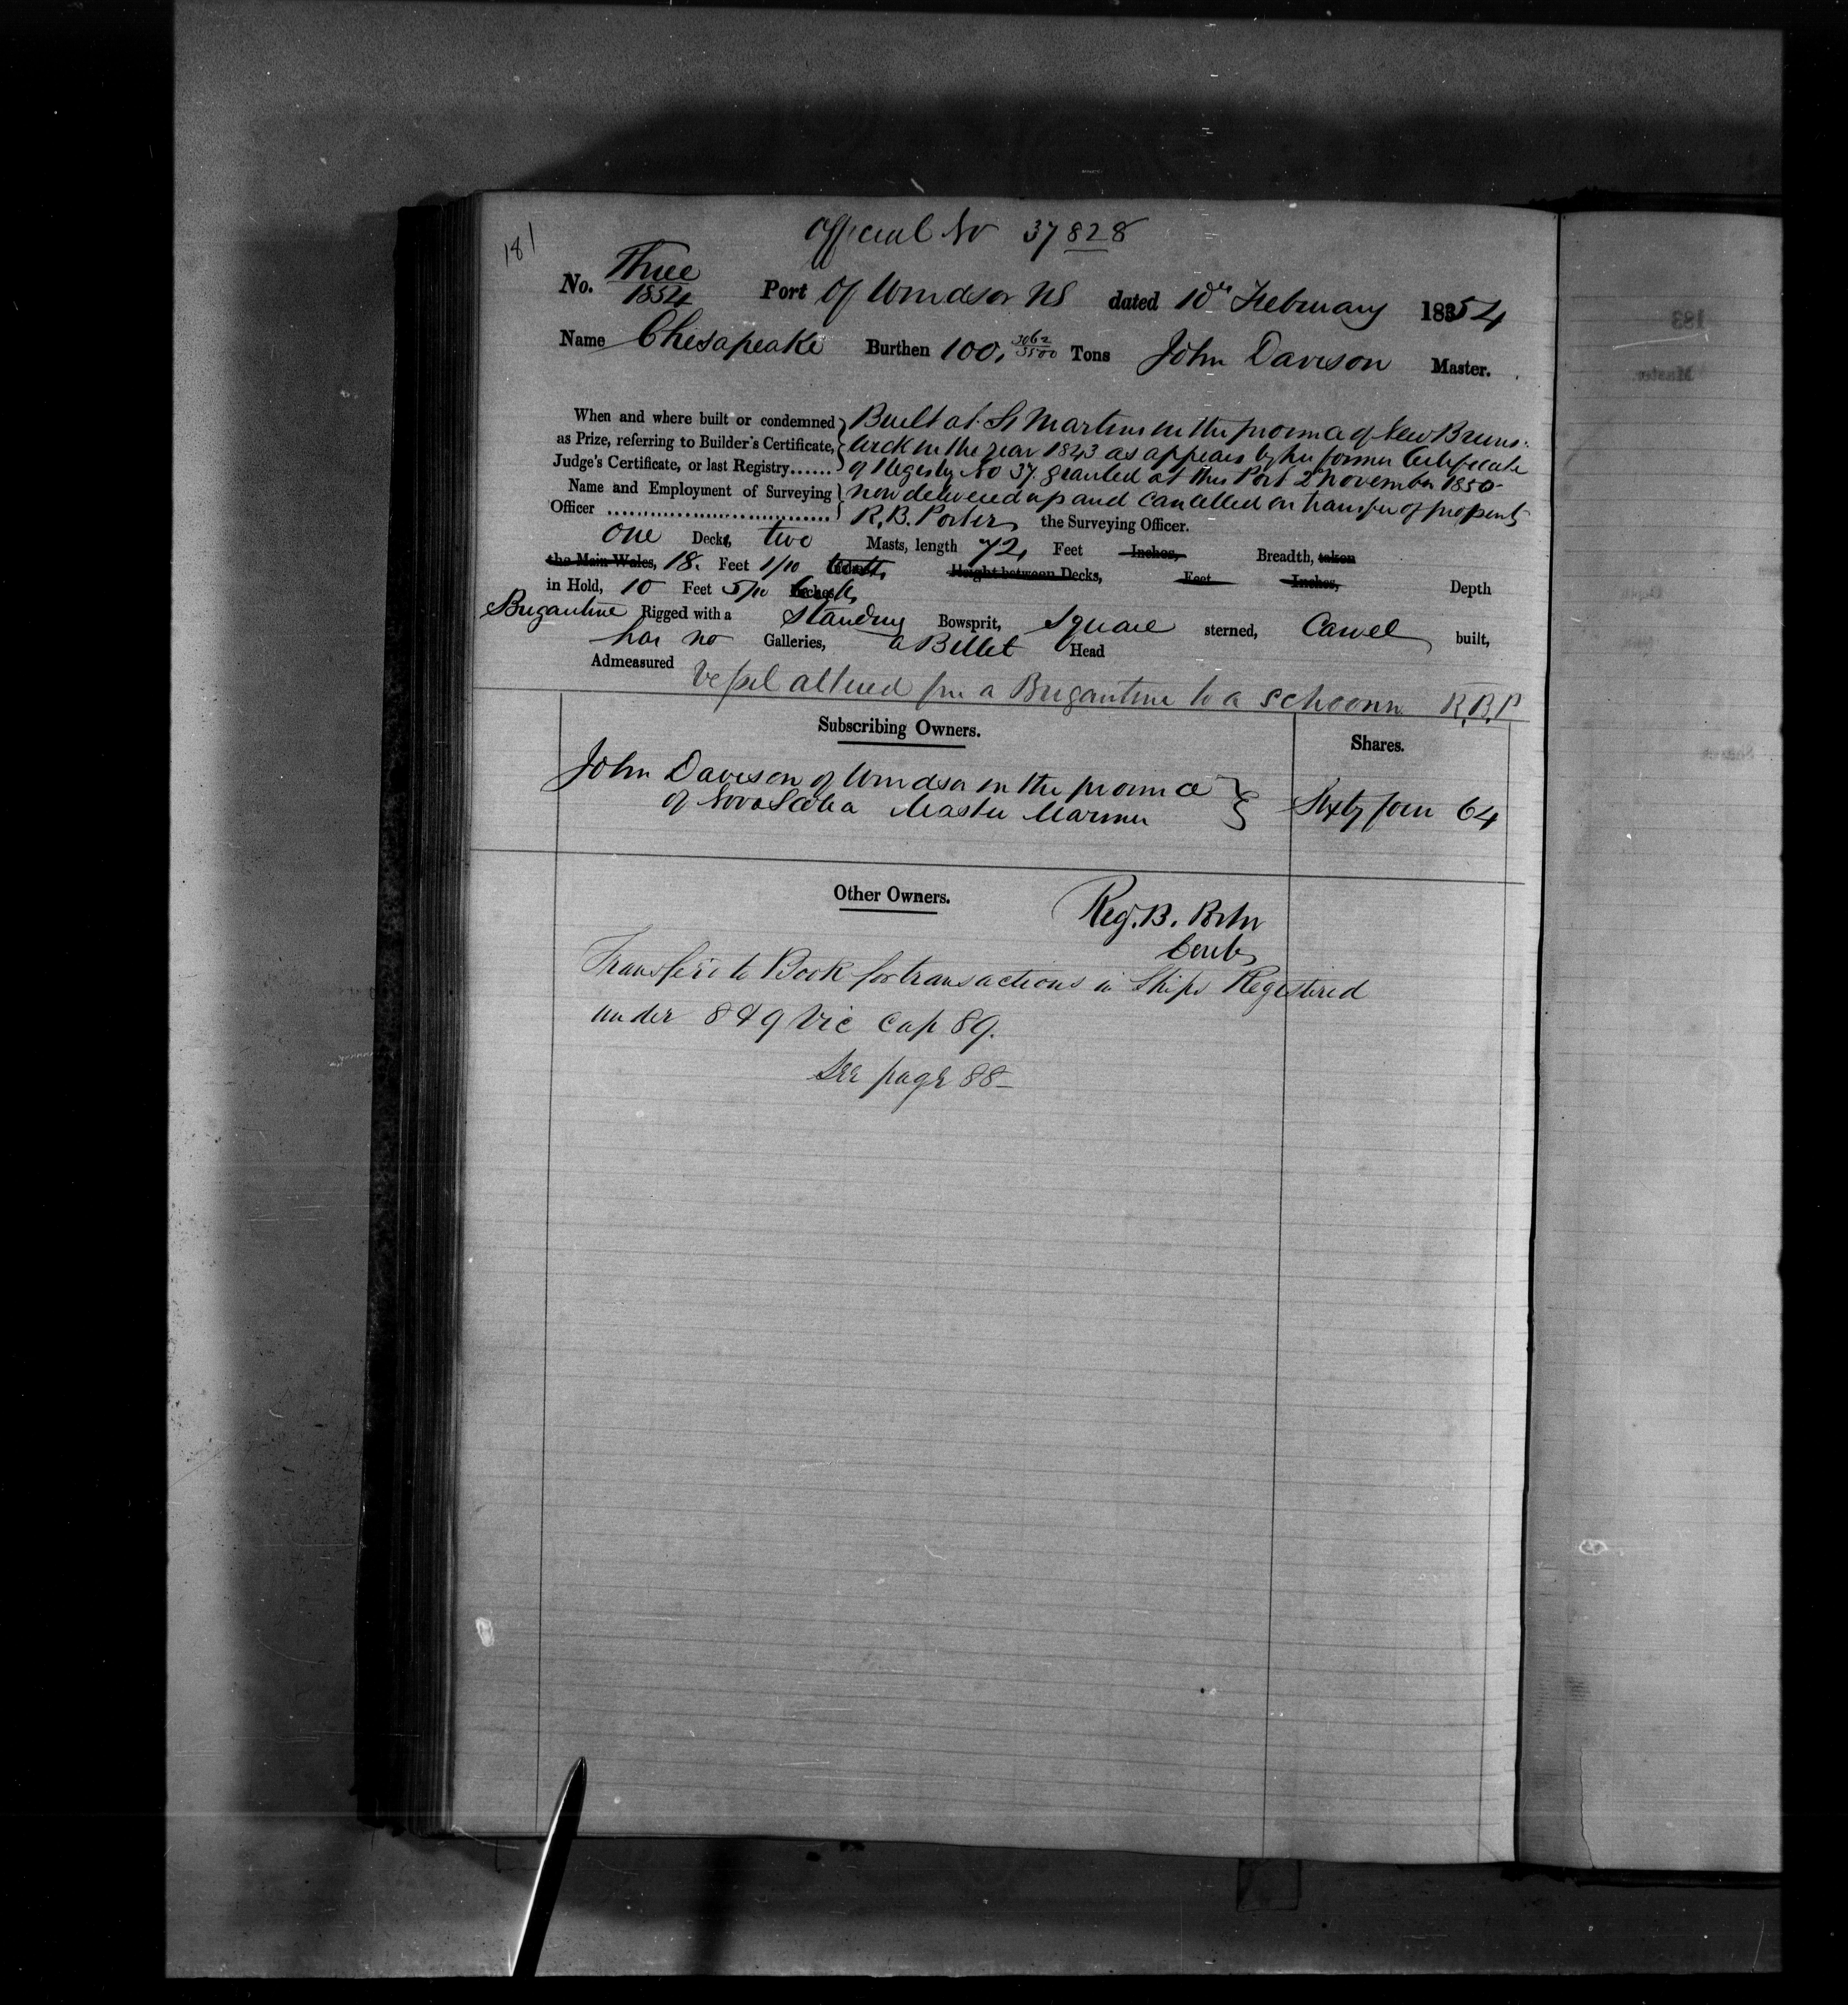 181
Official No 37828
No. Three 1854 Port Of Windsor NS dated 10th February 1854
Name Chesapeake Burthen 100, 3062/3500 Tons John Davison Master.
When and where built or condemned Built at St Martins in the province of New Bruns-
as Prize, referring to Builder's Certificate, wick in the year 1843 as appears by her former Certificate
Judge's Certificate, or last Registry...... of Registry No 37. granted at this Port 2d November 1850
Name and Employment of Surveying now delivered up and cancelled on transfer of property
Officer .................................. R.B. Porter the Surveying Officer.
One Deck, two Masts, length 72, Feet Inches, Breadth, taken
the Main Wales, 18. Feet 1/10 Height between Decks, Feet Inches, Depth
in Hold, 10 Feet 5/10 Inches
Brigantine Rigged with a Standing Bowsprit, Square sterned, Carvel built,
has no Galleries, a Billet Head
Admeasured Vessel altered fm a Brigantine to a schooner R.B.P
Subscribing Owners. Shares.
John Davison of Windsor in the province
of Nova Scotia Master Mariner Sixty four 64
Other Owners.
Reg. B. Porter
Transfer'd to Book for transactions in Ships Registered
under 8 & 9 Vic Cap 89.
See page 88
183
Master.